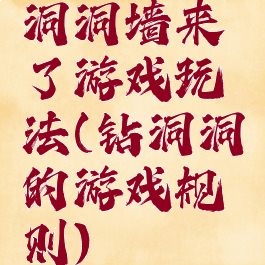 洞洞墙来
了游戏玩
法(钻洞洞
的游戏规
则)